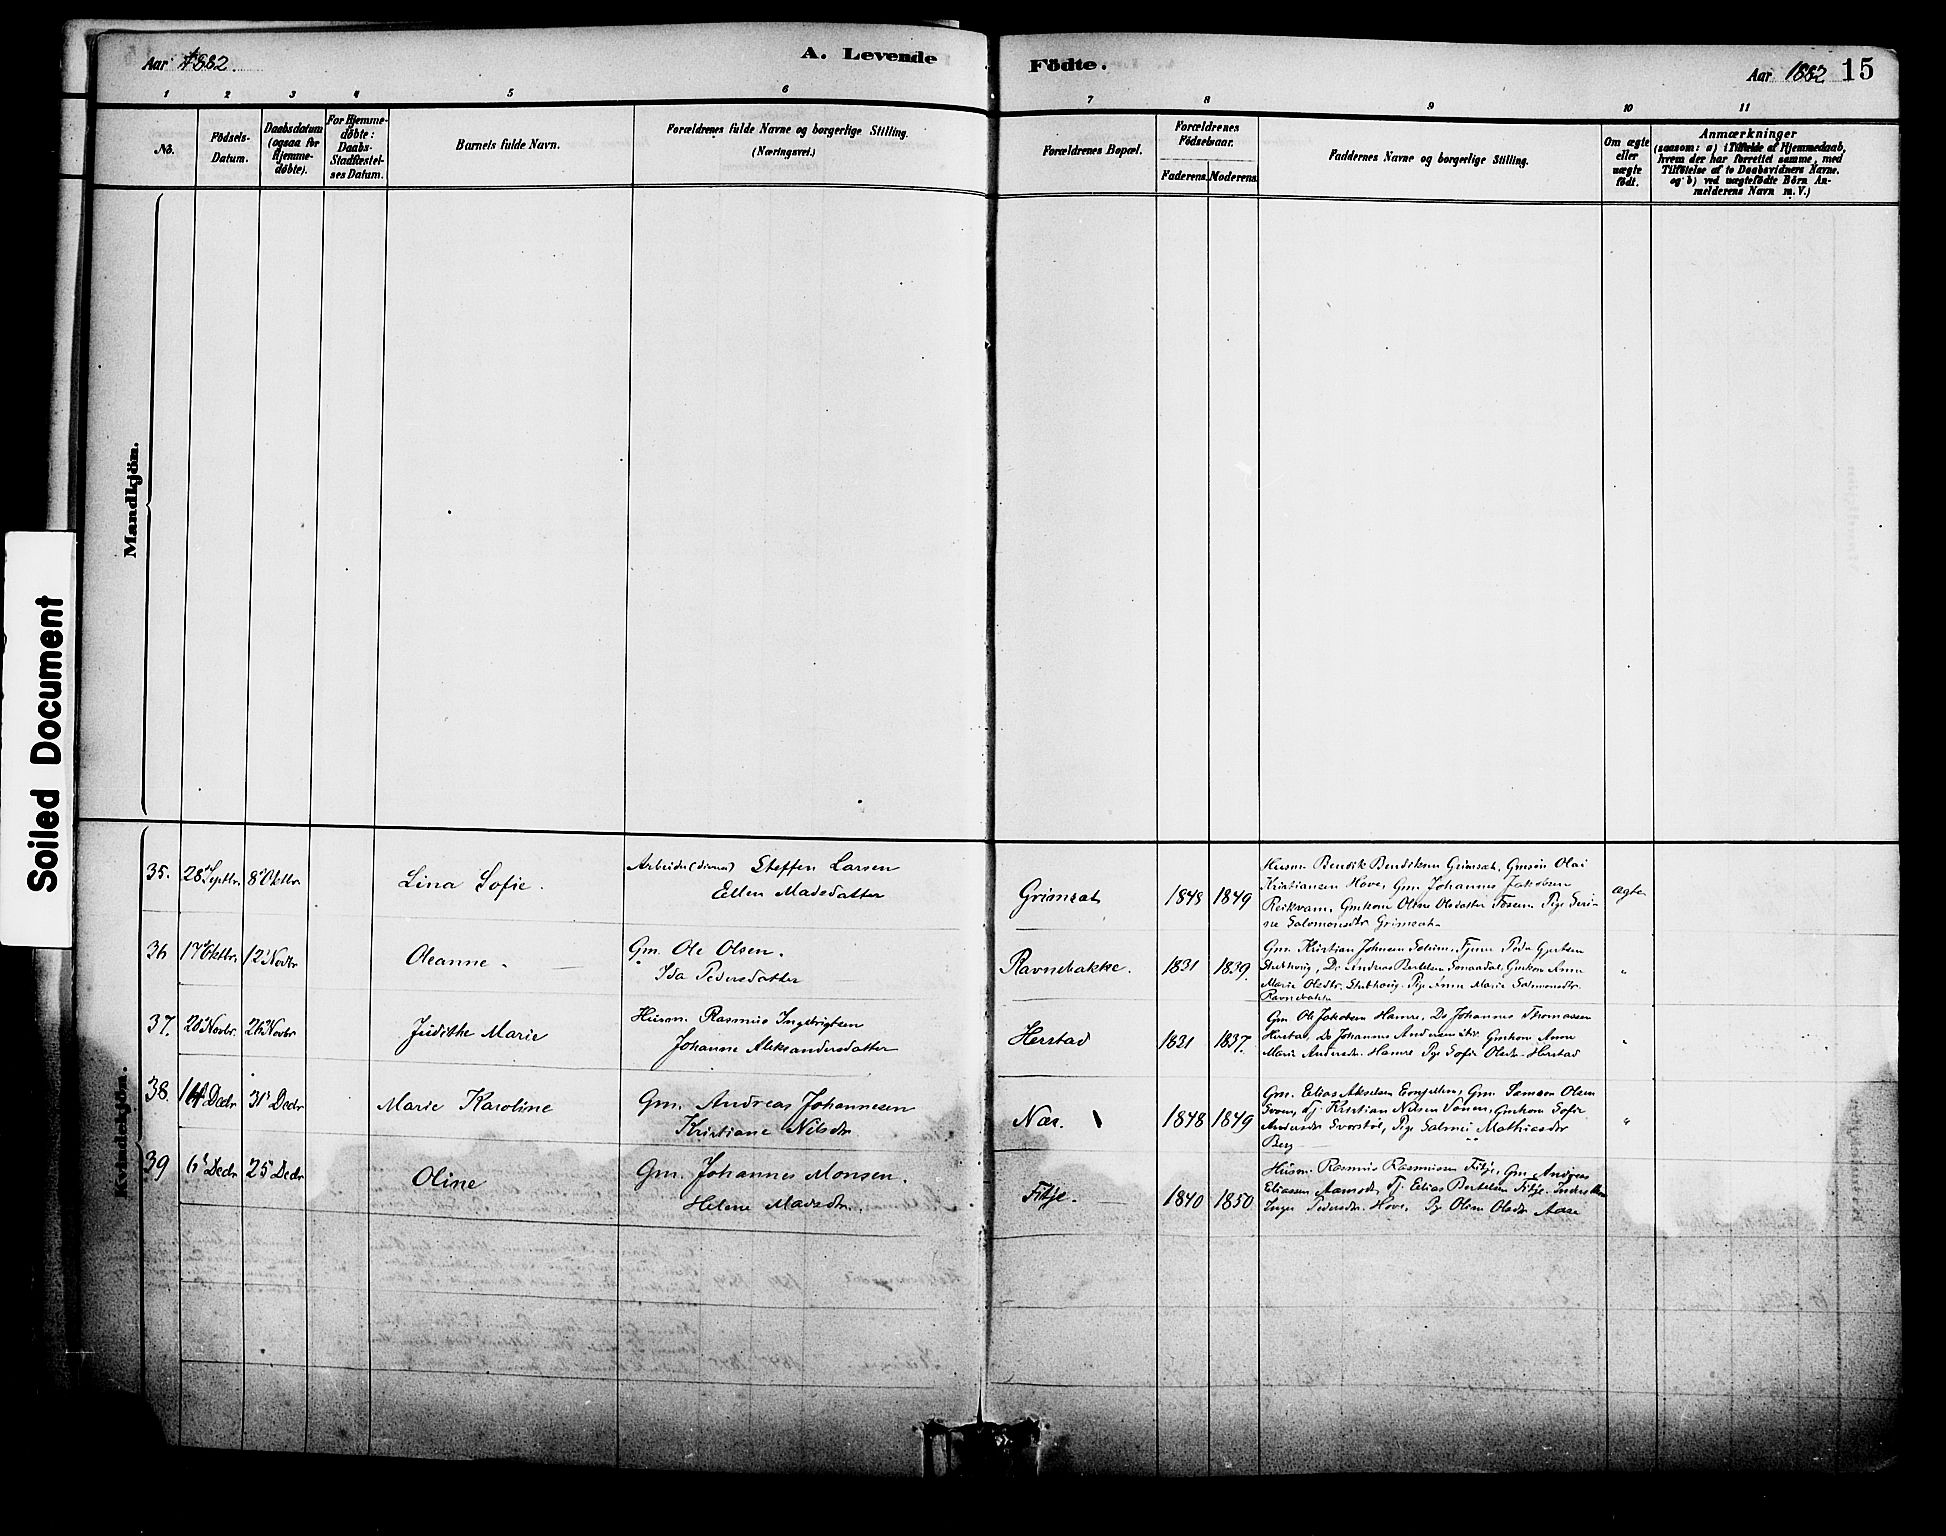 Aar 1882.
A. Levende
Födte.
Aar 1882
15
1 2 3 4 5 6 7 8 9 10 11
No.
Födsels-
Datum.
Daabsdatum
(ogsaa for
Hjemme-
døbte).
For Hjemme-
døbte:
Daabs-
Stadfæstel-
ses Datum.
Barnets fulde Navn.
Forældrenes fulde Navne og borgerlige Stilling.
(Næringsvei.)
Forældrenes Bopæl.
Forældrenes
Födselsaar.
Faderens.
Moderens.
Faddernes Navne og borgerlige Stilling.
Om ægte
eller
uægte
födt.
Anmærkninger
(saasom: a) i Tilfælde af Hjemmedaab,
hvem der har forrettet samme, med
Tilföielse af to Daabsvidners Navne.
og b) ved uægtefödte Börn An-
melderens Navn m. V.)
Mandkjön.
Soiled Document
Kvindekjön.
35. 28 Septbr. 8 Oktbr
Lina Sofie.
Steffen Larsen
Ellen Madsdatter
Grimsat 1848 1849
Husm. Bendik Bendiksen Grimsæt, Olai
Kristiansen Hove, Gm. Johannes Jakobsen
Reikvam, Gmkone Oline Olsdatter Pige Seri-
ne Salomonsdtr Grimsat
ægte
36 17 Oktbr. 12 Novbr
Oleanne.
Gm. Ole Olsen.
Ida Pedersdatter
Ravnebakke. 1831 1839.
Gm. Kristian Johnsen
Do Andreas Bertelsen Gmkon Anne
Marie Olsdtr. Pige Anne Marie Salmonsdtr.
Ravnebakke
"
37. 20 Novbr. 26 Novbr
Judithe Marie
Husm. Rasmus Ingebrigtsen
Johanne Aleksandersdatter
Herstad 1831 1837.
Gm Ole Jakobsen Hamre, Do Johannes Thomassen
Herstad, Do Johannes Andersen Gmkon Anne
Marie Andersdr. Hamre Pige Sofie Olsdr Herstad
"
38. 14 Decbr 31 Decbr
Marie Karoline
Gm. Andreas Johannesen
Kristiane Nilsdr.
Nær. 1848 1849
Gm. Elias Akselsen Gm. Samson Olsen
Kristian Nilsen Gmkon Sofie
Andersdr Pige Salmei Mathiasdr
Berg
"
39 6 Decbr 25 Decbr
Oline
Gm. Johannes Monsen.
Helene Madsdtr.
Fitje. 1840 1850
Husm. Rasmus Rasmussen Fitje, Gm Andreas
Eliassen Elias Bertelsen Fitje.
Inger Pedersdr. Hove, Pge Oline Olsdr Aase